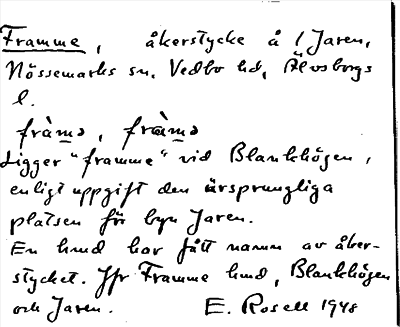 Framme, åkerstycke å 1 Jaren,
Nössemarks sn, Vedbo hd, Älvsborgs
l.
fràmə, fràmə
Ligger "framme" vid Blankhögen,
enligt uppgift den ursprungliga
platsen för byn Jaren.
En hmd har fått namn av åker-
stycket. Jfr Framme hmd, Blankhögen
och Jaren. E. Rosell 1948